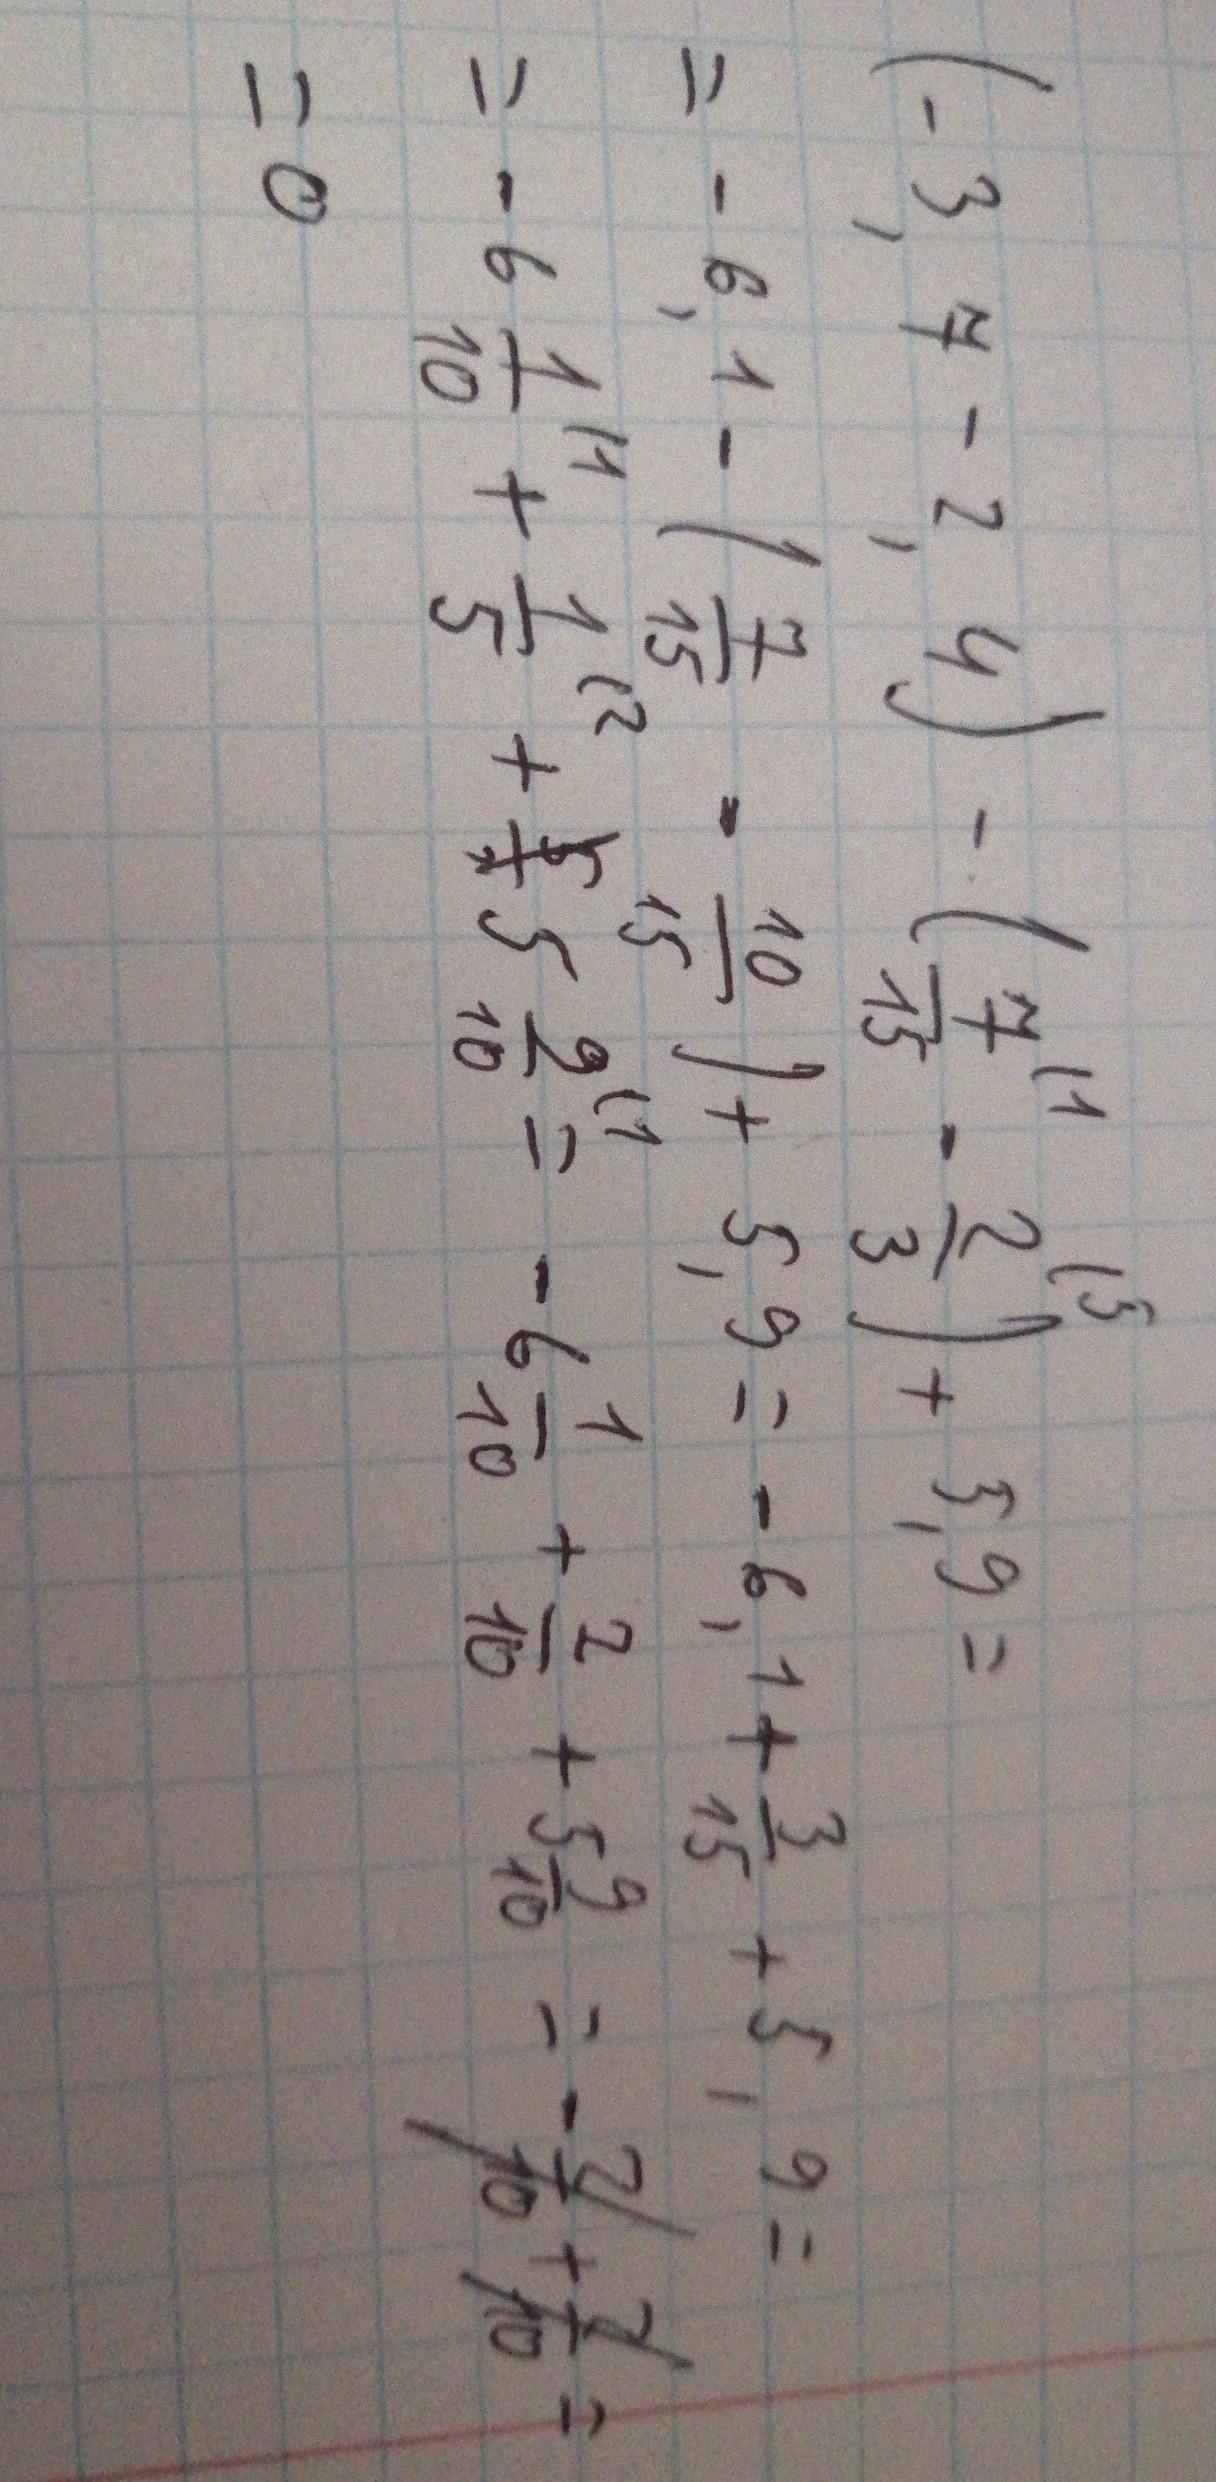 (-3,7-2,4)-(7/15^(1 - 2/3^(5)+5,9=
=-6,1-(7/15 - 10/15)+5,9=-6,1+3/15+5,9=
=-6 1/10^(1 + 1/5^(2 + 5 9/10^(1 = -6 1/10 + 2/10 + 5 9/10 = -2/10 + 2/10 =
=0